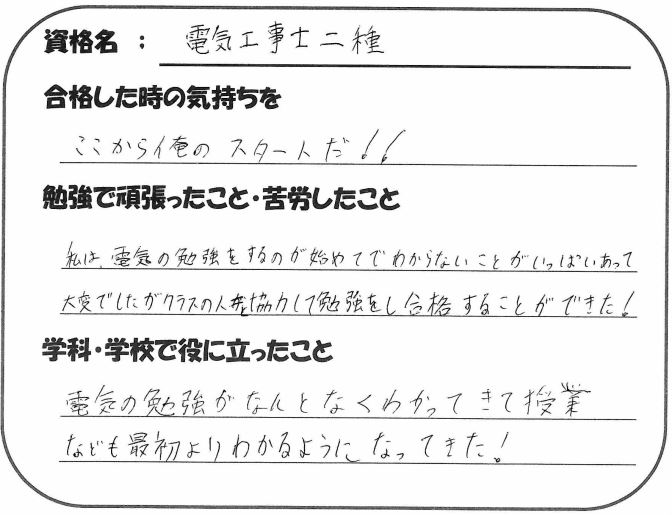 資格名 : 電気工事士二種
合格した時の気持ちを
ここから俺のスタートだ!!
勉強で頑張ったこと・苦労したこと
私は、電気の勉強をするのが始めてでわからないことがいっぱいあって
大変でしたがクラスの人と協力して勉強をし合格することができた!
学科・学校で役に立ったこと
電気の勉強がなんとなくわかってきて授業
なども最初よりわかるようになってきた!